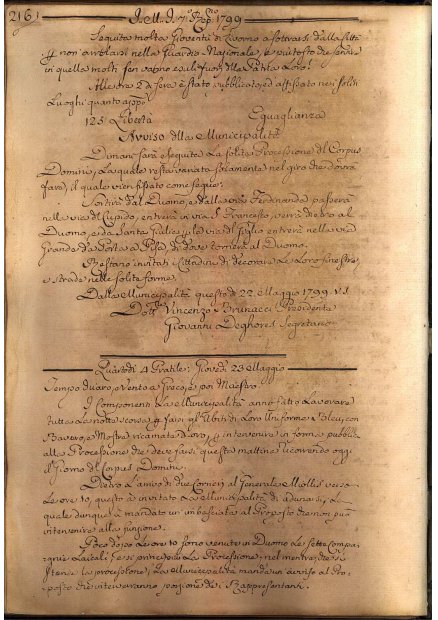 216
I.M.I. 7º 1799
Seguita molta Gioventù di Livorno a sortirsi dalla Città
p non arrolarsi nella Guardia Nazionale, e piutosto che servire
in quella molti sen vanno esuli fuori della Patria Loro!
Alle ore 2 di sera è stato pubblicato ed affissato nei soliti
Luoghi quanto app.º
125 Libertà Eguaglianza
Avviso della Municipalità
Dimani sarà eseguita la solita Processione del Corpus
Domini, La quale resta variata solamente nel giro che dovrà
fare, il quale vien fissato come segue:
Sortirà dal Duomo, e dalla via Ferdinanda passerà
nella via di Cupido, entrerà in via S. Francesco, verrà dietro al
Duomo, e da Santa Giulia, p la via del Giglio entrerà nella via
Grande da Porta a Pisa, di dove tornerà al Duomo.
Restano invitati i Cittadini di decorare le Loro finestre,
e strade nelle solite forme.
Dalla Municipalità questo dì 22. Maggio 1799. v.s.
Dott.e Vincenzo Brunacci Presidente
Giovanni Deghores Segretario
Quartodì 4 Pratile: Giovedì 23 Maggio
Tempo chiaro, e Vento a Greco, e poi Maestro
I Componenti La Municipalità anno fatto Lavorare
tutta La notte scorsa p farsi gli Abiti di Loro Uniforme Bleu, con
Bavero, e Mostre ricamate d'oro, p intervenire in forma pubblica
alla Processione che deve farsi questa mattina ricorrendo oggi
il Giorno del Corpus Domini.
Dietro L'arrivo di due Corrieri al Generale Miollis verso
Le ore 10, questo à invitato La Municipalità di adunarsi, La
quale dunque à mandato un'imbasciata al Proposto che non può
intervenire alla funzione.
Poco dopo Le ore 10 sono venute in Duomo Le sette Compa-
gnie Laicali, e si è principiata La Processione, nel mentre che si
stava La processione, La Municipalità manda un avviso al Pro-
posto che interverranno porzione dei Rappresentanti.